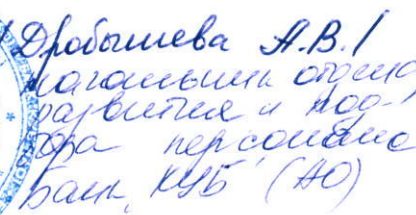 Дробышева А.В./
начальник отдела
развития и под-
бора персонала
Банк "КУБ" (АО)